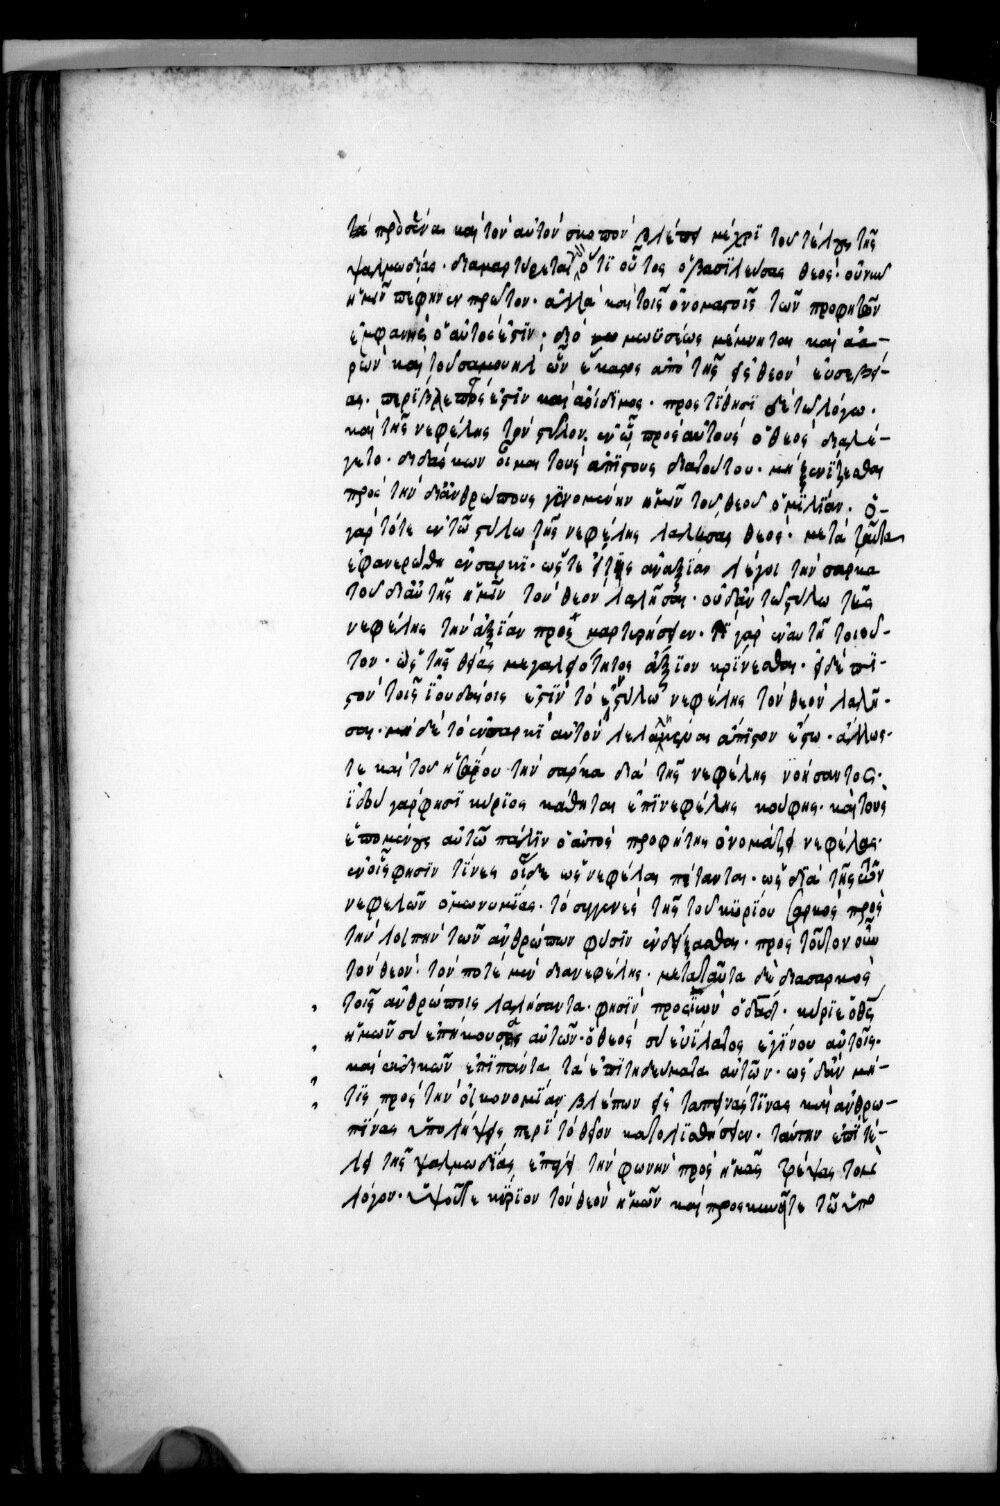 τὰ πρὸς ἕνα καὶ τὸν αὐτὸν σκοπὸν βλέπει μέχρι τοῦ τέλους τῆς
ψαλμωδίας· διαμαρτύρεται ὅτι οὗτος ὁ βασιλεύσας θεός· οὐ νῦν
ἡμῖν πέφηνεν πρῶτον· ἀλλὰ καὶ τοῖς ὀνομαστοῖς τῶν προφητῶν
ἐμφανὴς ὁ αὐτός ἐστιν· διὸ μωϋσέως μέμνηται καὶ αα-
ρὼν καὶ τοῦ σαμουηλ ὧν ἕκαστος ἀπὸ τῆς εἰς θεὸν εὐσεβεί-
ας· περίβλεπτός ἐστιν καὶ ἀοίδιμος· προστίθησι δὲ τῶ λόγω·
καὶ τῆς νεφέλης τὸν στύλον· ἐν ὧ πρὸς αὐτοὺς ὁ θεὸς διαλέ-
γετο· διδάσκων οἶμαι τοὺς ἀπίστους διατούτου· μὴ ξενίζεσθαι
πρὸς τὴν δι ἀνθρώπους γενομένην ἡμῖν τοῦ θεοῦ ὁμιλίαν· ὁ-
γὰρ τότε ἐν τῶ στύλω τῆς νεφέλης λαλήσας θεὸς· μετὰ ταῦτα
ἐφανερώθη ἐν σαρκί· ὥστε εἴ τις ἀναξίαν λέγοι τὴν σαρκα
τοῦ δι αὐτῆς ἡμῖν τὸν θεον λαλῆσαι· οὐδ ἂν τῶ στύλω τῆς
νεφέλης τὴν ἀξίαν προσμαρτυρήσειεν· τί γὰρ ἐν αυτῆ τοιοῦ-
τον· ὡς τῆς θείας μεγαλειότητος ἄξιον κρίνεσθαι· εἰ δὲ πι-
στὸν τοῖς ϊουδαίοις ἐστὶν τὸ ἐν στύλω νεφέλης τὸν θεὸν λαλῆ-
σαι· μη δὲ τὸ ἐν σαρκὶ αὐτὸν λελαληκέναι ἄπιστον ἔστω· ἄλλως-
τε καὶ τοῦ ἡσαϊου τὴν σαρκα διὰ τῆς νεφέλης νοήσαντος·
ϊδοὺ γάρ φησι κύριος κάθηται ἐπὶ νεφέλης κούφης· καὶ τοὺς
ἑπομένους αὐτῶ πάλιν ὁ αὐτὸς προφήτης ὀνομάζει νεφέλας·
ἐν οἷς φησιν τίνες οἵδε ὡς νεφέλαι πέτανται· ὡς διὰ τῆς τῶν
νεφελῶν ὁμωνυμίας· τὸ συγγενὲς τῆς τοῦ κυρίου σαρκὸς πρὸς
τὴν λοιπὴν τῶν ἀνθρώπων φύσιν ἐνδείξασθαι· πρὸς τοῦτον οὖν
τὸν θεὸν· τὸν ποτὲ μὲν διανεφέλης· μετα ταῦτα δὲ διασαρκὸς
τοῖς ἀνθρώποις λαλήσαντα· φησὶν προσϊὼν ὁ δαδ· κύριε ὁ θς
ἡμῶν σὺ ἐπήκουσας αὐτῶν· ὁ θεὸς σὺ εὐΐλατος ἐγίνου αὐτοῖς·
καὶ ἐκδικῶν ἐπὶ πάντα τὰ ἐπιτηδεύματα αὐτῶν· ὡς δ ἂν μή-
τις πρὸς τὴν οἰκονομίαν βλέπων εἰς ταπεινάς τινας καὶ ἀνθρω-
πίνας ὑπολήψεις περὶ τὸ θεῖον κατολϊσθήσειεν· ταύτην ἐπὶ τέ-
λει τῆς ψαλμωδίας ἐπάγει τὴν φωνὴν πρὸς ἡμᾶς τρέψας τον
λόγον· ὑψοῦτε κύριον τὸν θεὸν ἡμῶν καὶ προσκυνεῖτε τῶ ὑπο